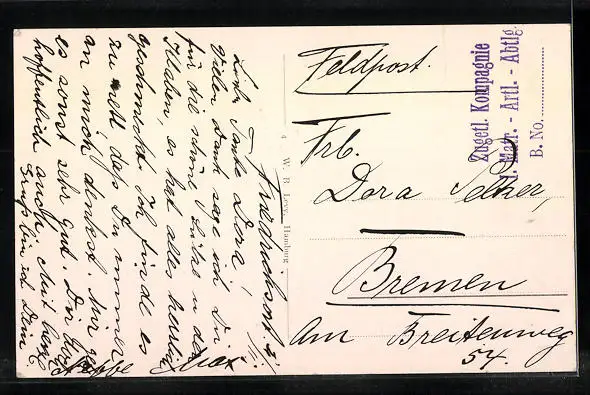 Feldpost.
Zugetl. Kompagnie
I. Matr. - Artl. - Abtlg.
B. No.
Frl.
Dora
Bremen
Am Breitenweg
54.
W. B. L. Hamburg
4
Friedrichsort, d.
Liebe Tante Dora!
Vielen Dank sage ich Dir
für die schöne u den
es hat alles
geschmeckt. Ich finde es
zu nett, daß Du immer
an mich denkst. Mir geht
es sonst sehr gut. Dir
hoffentlich auch. Mit herzl.
Gruß bin ich Dein
Neffe Max